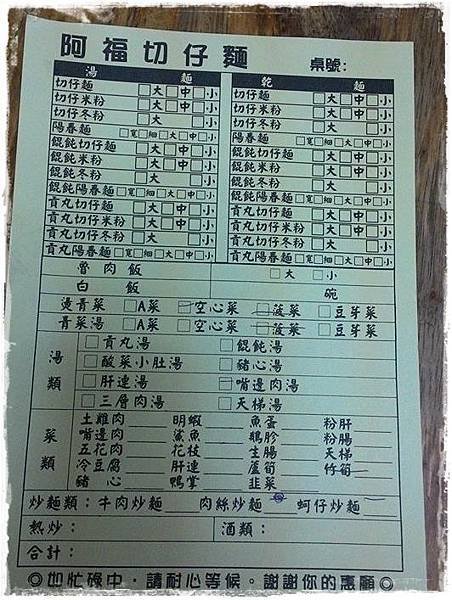 阿福切仔麵 桌號:
湯 麵 乾 麵
切仔麵 □大□中□小 切仔麵 □大□中□小
切仔米粉 □大□中□小 切仔米粉 □大□中□小
切仔冬粉 □大 □小 切仔冬粉 □大 □小
陽春麵 □寬□細□大□中□小 陽春麵 □寬□細□大□中□小
餛飩切仔麵 □大□中□小 餛飩切仔麵 □大□中□小
餛飩米粉 □大□中□小 餛飩米粉 □大□中□小
餛飩冬粉 □大 □小 餛飩冬粉 □大 □小
餛飩陽春麵 □寬□細□大□中□小 餛飩陽春麵 □寬□細□大□中□小
貢丸切仔麵 □大□中□小 貢丸切仔麵 □大□中□小
貢丸切仔米粉 □大□中□小 貢丸切仔米粉 □大□中□小
貢丸切仔冬粉 □大 □小 貢丸切仔冬粉 □大 □小
貢丸陽春麵 □寬□細□大□中□小 貢丸陽春麵 □寬□細□大□中□小
魯肉飯 □大 □小
白 飯 碗
燙青菜 □A菜 □空心菜 □菠菜 □豆芽菜
青菜湯 □A菜 □空心菜 □菠菜 □豆芽菜
湯類
□貢丸湯 □餛飩湯
□酸菜小肚湯 □豬心湯
□肝連湯 □嘴邊肉湯
□三層肉湯 □天梯湯
菜類
土雞肉 明蝦 魚蛋 粉肝
嘴邊肉 鯊魚 鵝胗 粉腸
五花肉 花枝 生腸 天梯
冷豆腐 肝連 蘆筍 竹筍
豬心 鴨掌 韭菜
炒麵類:牛肉炒麵 肉絲炒麵 蚵仔炒麵
熱炒: 酒類:
合計:
◎如忙碌中,請耐心等候。謝謝你的惠顧◎